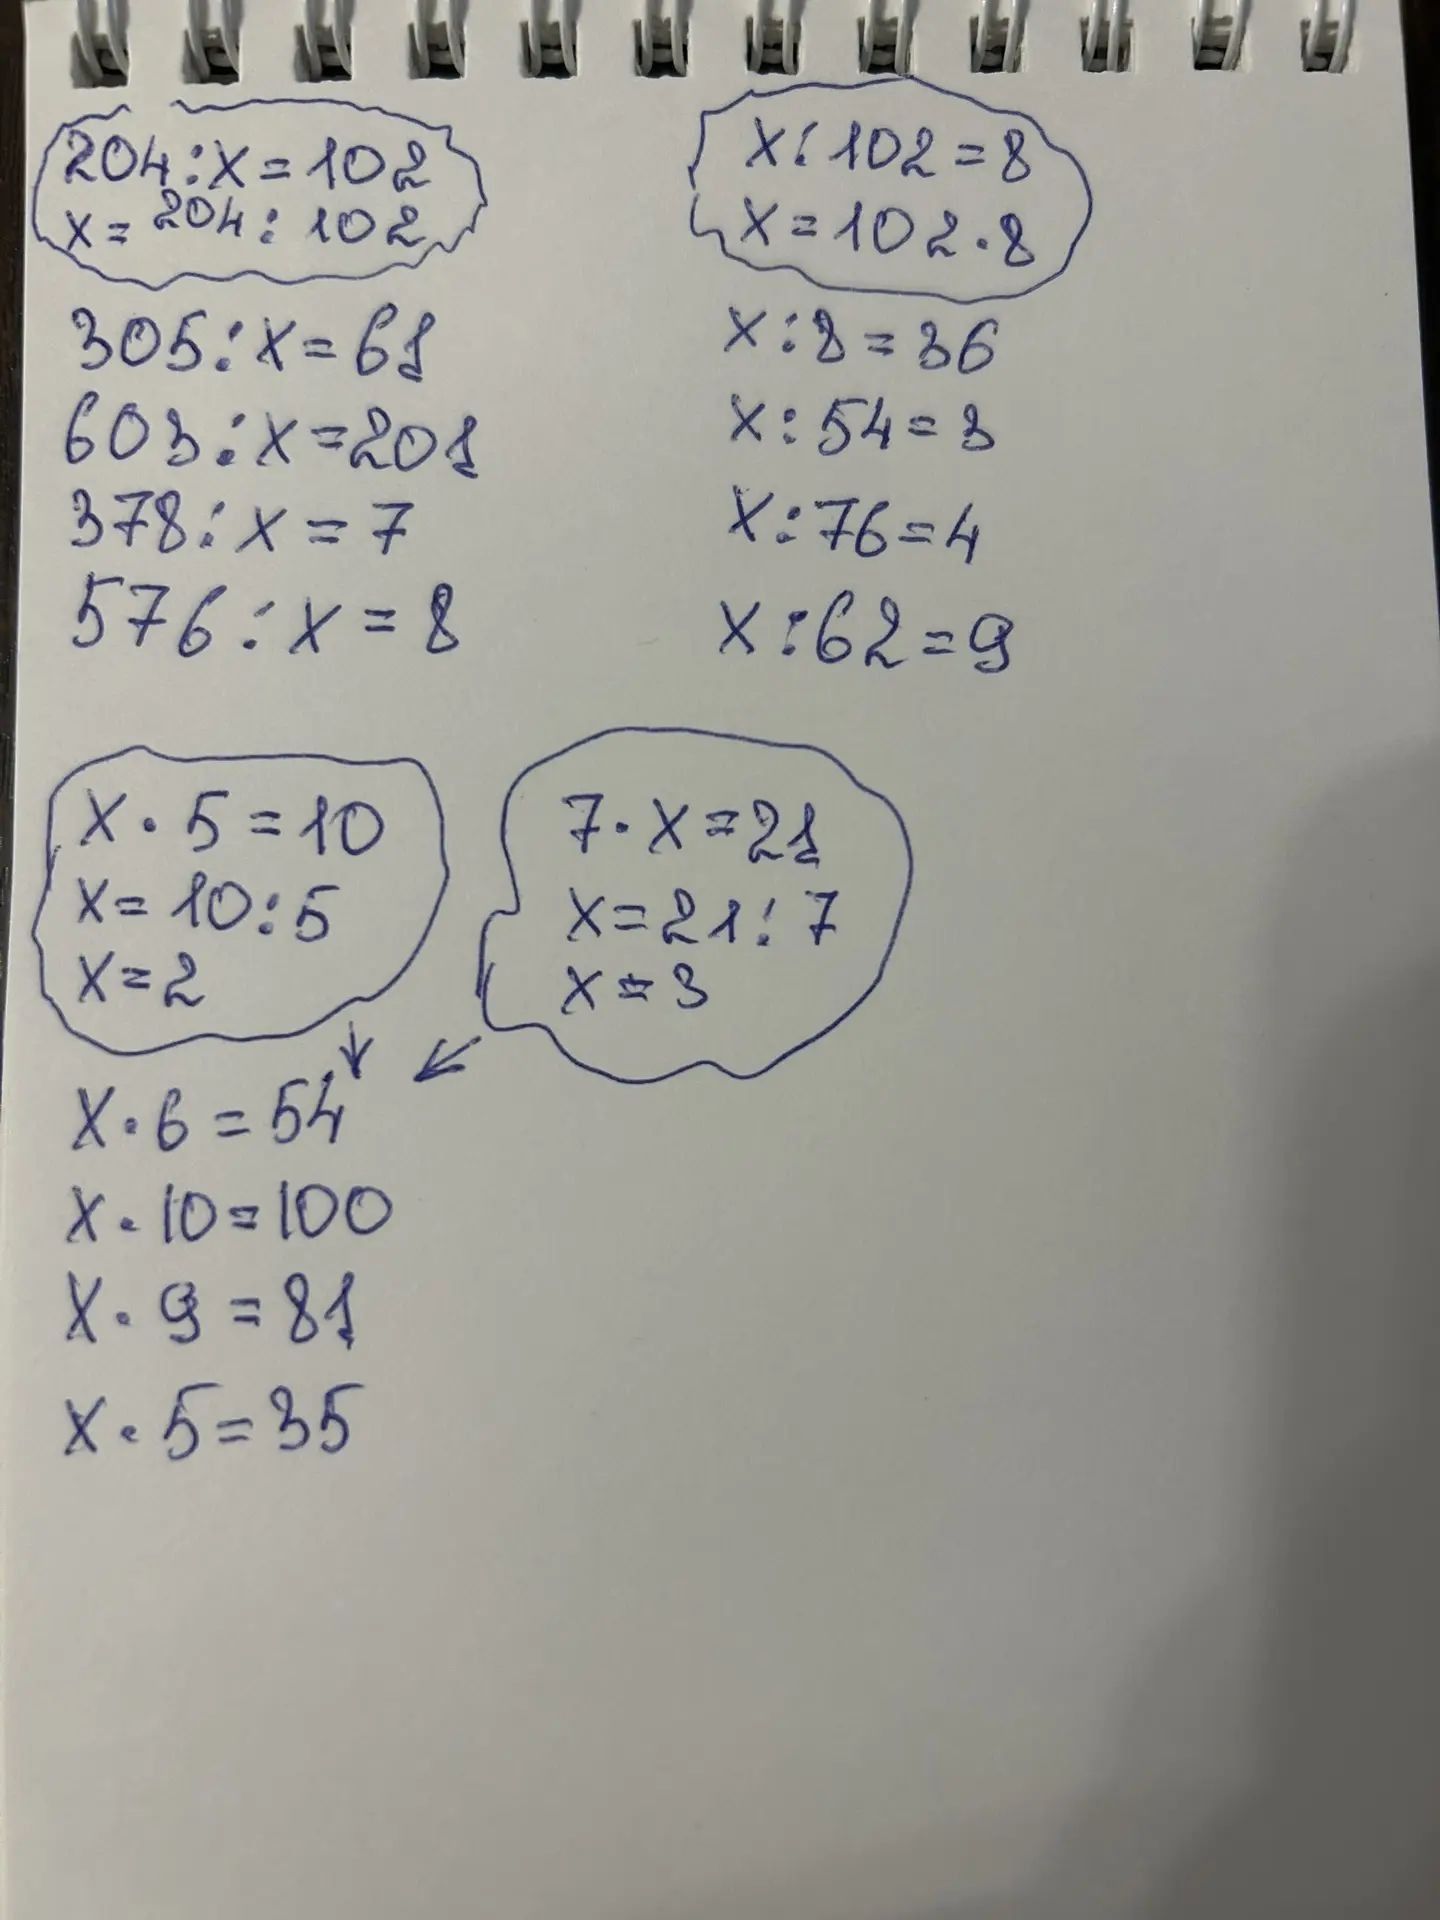 204:x=102
x=204:102
305:x=61
603:x=201
378:x=7
576:x=8
x:102=8
x=102·8
x:8=36
x:54=3
x:76=4
x:62=9
x·5=10
x=10:5
x=2
7·x=21
x=21:7
x=3
x·6=54
x·10=100
x·9=81
x·5=35